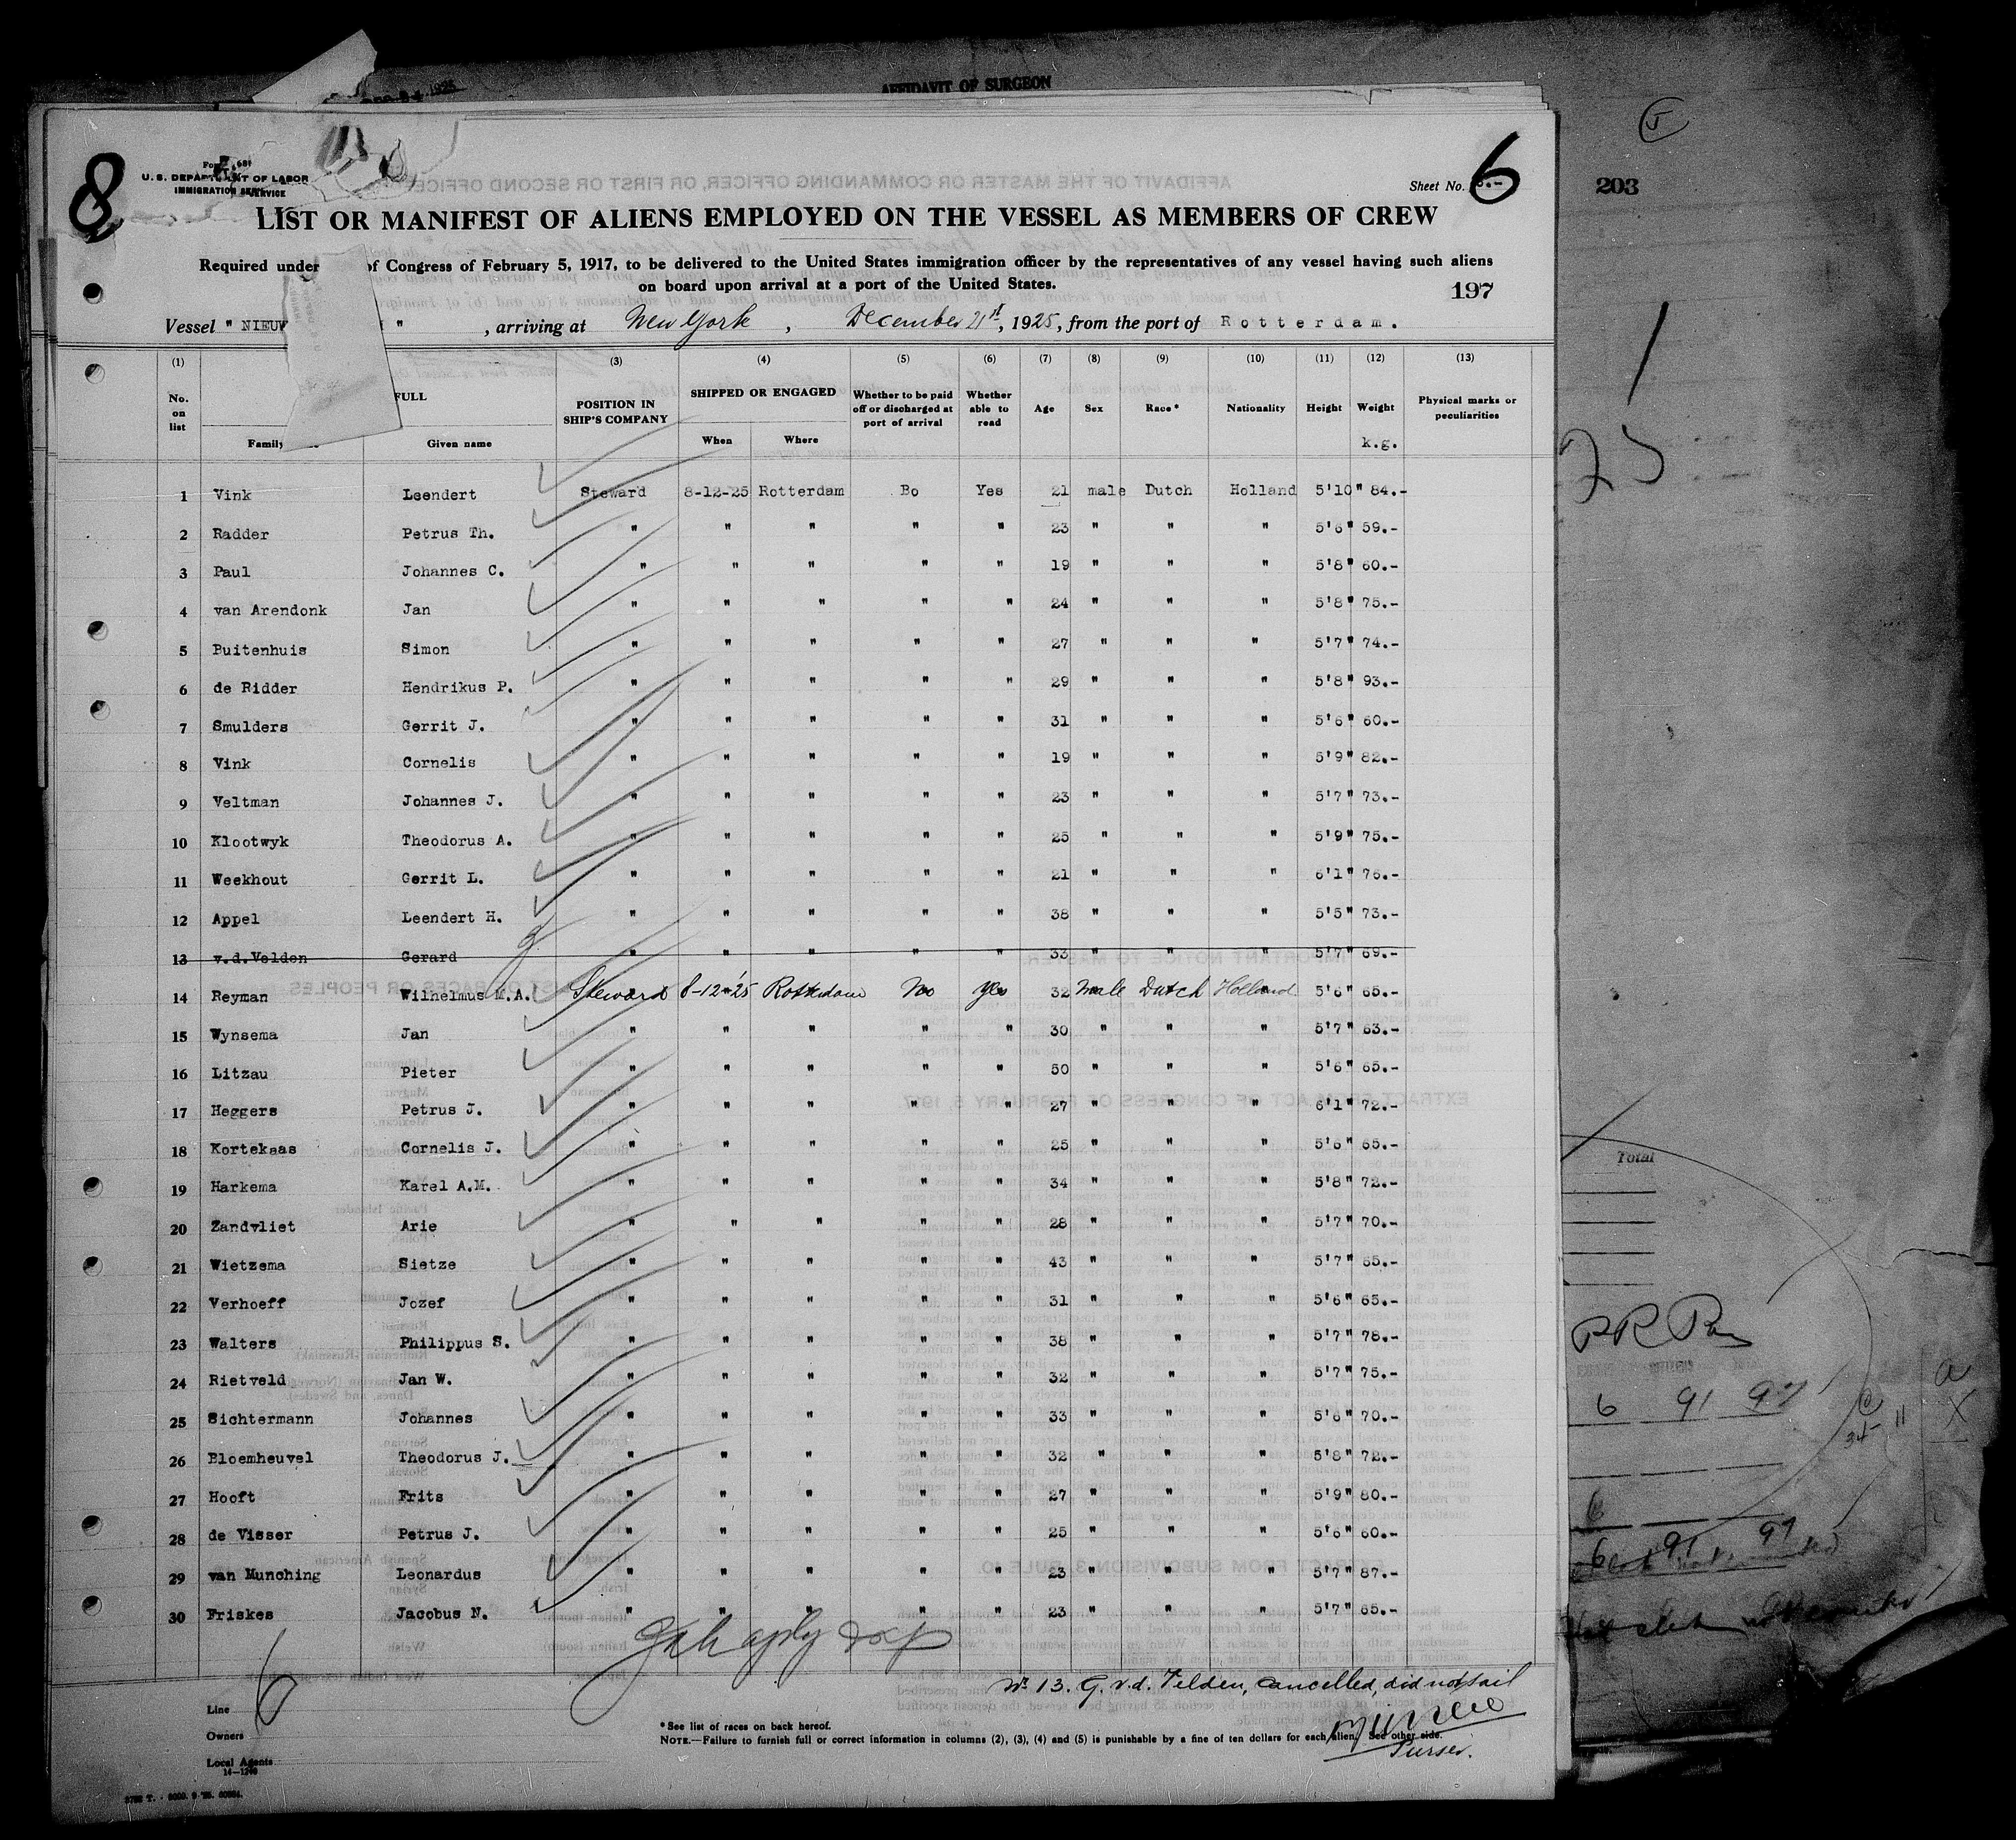 1925
AFFIDAVIT OF SURGEON
8
6
U. S. DEPARTMENT OF LABOR
IMMIGRATION SERVICE
Sheet No.
203
LIST OR MANIFEST OF ALIENS EMPLOYED ON THE VESSEL AS MEMBERS OF CREW
Required under of Congress of February 5, 1917, to be delivered to the United States immigration officer by the representatives of any vessel having such aliens
on board upon arrival at a port of the United States.
197
Vessel " NIEUW " , arriving at New York , December 21st, 1925, from the port of Rotterdam.
(1) (3) (4) (5) (6) (7) (8) (9) (10) (11) (12) (13)
No. on list FULL Family Given name POSITION IN SHIP'S COMPANY SHIPPED OR ENGAGED When Where Whether to be paid off or discharged at port of arrival Whether able to read Age Sex Race* Nationality Height Weight k.g. Physical marks or peculiarities
1 Vink Leendert Steward 8-12-25 Rotterdam Bo Yes 21 male Dutch Holland 5'10" 84.-
2 Radder Petrus Th. " " " " " 23 " " " 5'6" 59.-
3 Paul Johannes C. " " " " " 19 " " " 5'8" 60.-
4 van Arendonk Jan " " " " " 24 " " " 5'8" 75.-
5 Buitenhuis Simon " " " " " 27 " " " 5'7" 74.-
6 de Ridder Hendrikus P. " " " " " 29 " " " 5'8" 93.-
7 Smulders Gerrit J. " " " " " 31 " " " 5'6" 60.-
8 Vink Cornelis " " " " " 19 " " " 5'9" 82.-
9 Veltman Johannes J. " " " " " 23 " " " 5'7" 73.-
10 Klootwyk Theodorus A. " " " " " 25 " " " 5'9" 75.-
11 Weekhout Gerrit L. " " " " " 21 " " " 6'1" 76.-
12 Appel Leendert H. " " " " " 38 " " " 5'5" 73.-
13 v.d.Velden Gerard " " " " " 33 " " " 5'7" 69.-
14 Reyman Wilhelmus M.A. Steward 8-12-'25 Rotterdam No Yes 32 male Dutch Holland 5'6" 65.-
15 Wynsema Jan " " " " " 30 " " " 5'7" 63.-
16 Litzau Pieter " " " " " 50 " " " 5'6" 65.-
17 Heggers Petrus J. " " " " " 27 " " " 6'1" 72.-
18 Kortekaas Cornelis J. " " " " " 25 " " " 5'6" 65.-
19 Harkema Karel A.M. " " " " " 34 " " " 5'8" 72.-
20 Zandvliet Arie " " " " " 28 " " " 5'7" 70.-
21 Wietzema Sietze " " " " " 43 " " " 5'7" 65.-
22 Verhoeff Jozef " " " " " 31 " " " 5'6" 65.-
23 Walters Philippus S. " " " " " 38 " " " 5'7" 78.-
24 Rietveld Jan W. " " " " " 32 " " " 5'7" 75.-
25 Sichtermann Johannes " " " " " 33 " " " 5'6" 70.-
26 Bloemheuvel Theodorus J. " " " " " 32 " " " 5'8" 72.-
27 Hooft Frits " " " " " 27 " " " 5'9" 80.-
28 de Visser Petrus J. " " " " " 25 " " " 5'6" 60.-
29 van Munching Leonardus " " " " " 23 " " " 5'7" 87.-
30 Friskes Jacobus N. " " " " " 23 " " " 5'7" 65.-
No 13. G. v.d. Velden, cancelled, did not sail
Purser.
6
Line
Owners
Local Agents
14—1240
*See list of races on back hereof.
NOTE.—Failure to furnish full or correct information in columns (2), (3), (4) and (5) is punishable by a fine of ten dollars for each alien. See other side.
Total
6 91 97
6
6 91 97